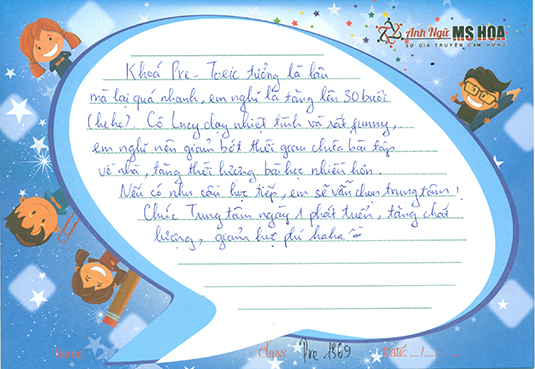 Anh Ngữ MS HOA
SỨ GIẢ TRUYỀN CẢM HỨNG
Khoá Pre - Toeic tưởng là lâu
mà lại quá nhanh, em nghĩ là tăng lên 30 buổi
(hehe). Cô Lucy dạy nhiệt tình và rất funny,
em nghĩ nên giảm bớt thời gian chữa bài tập
về nhà, tăng thời lượng bài học nhiều hơn.
Nếu có nhu cầu học tiếp, em sẽ vẫn chọn trung tâm!
Chúc Trung tâm ngày 1 phát triển, tăng chất
lượng, giảm học phí haha
Name: Class: Pre 1369 Date: .../.../...